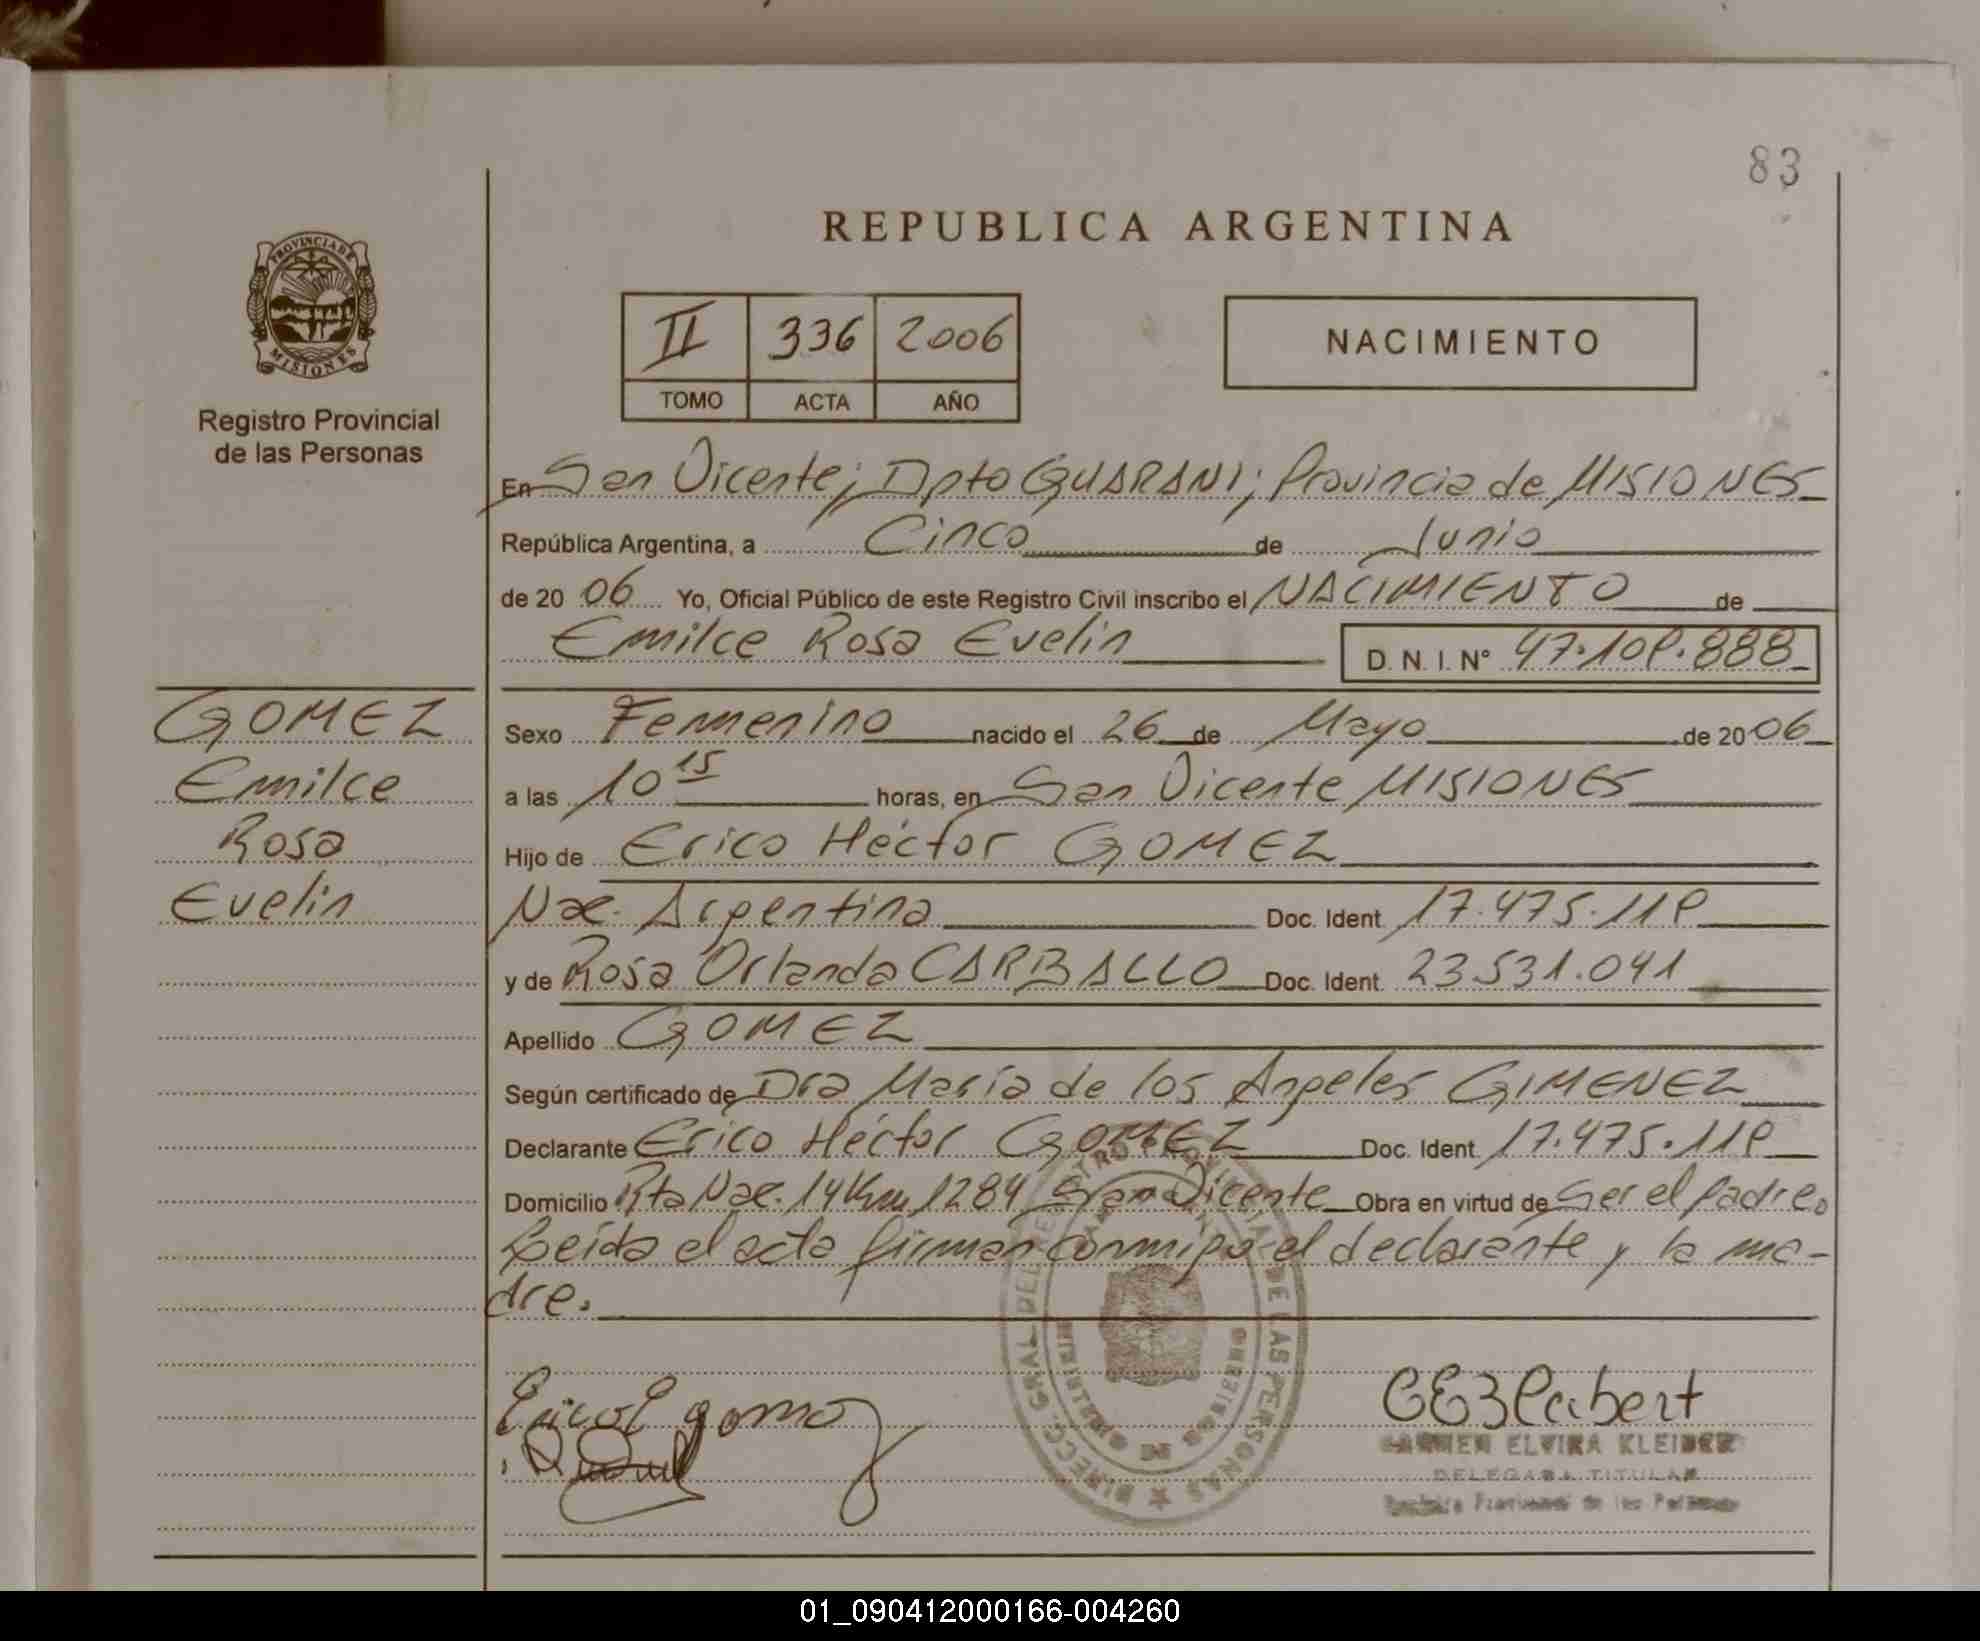 83
REPUBLICA ARGENTINA
PROVINCIA DE
MISIONES
Registro Provincial
de las Personas
II 336 2006
TOMO ACTA AÑO
NACIMIENTO
En San Vicente; Dpto GUARANI; Provincia de MISIONES
República Argentina, a Cinco de Junio
de 20 06 Yo, Oficial Público de este Registro Civil inscribo el NACIMIENTO de
Emilce Rosa Evelin D. N. I. N° 47.109.888
GOMEZ
Emilce
Rosa
Evelin
Sexo Femenino nacido el 26 de Mayo de 20 06
a las 10 15 horas, en San Vicente MISIONES
Hijo de Erico Héctor GOMEZ
Nac. Argentina Doc. Ident. 17.475.119
y de Rosa Orlanda CARBALLO Doc. Ident. 23.531.041
Apellido GOMEZ
Según certificado de Dra María de los Angeles GIMENEZ
Declarante Erico Héctor GOMEZ Doc. Ident. 17.475.119
Domicilio Rta Nac. 14 Km 1284 San Vicente Obra en virtud de Ser el padre.
Leída el acta firman conmigo el declarante y la ma-
dre.
DIRECC. GRAL. DEL REGISTRO PROVINCIAL DE LAS PERSONAS
CARMEN ELVIRA KLEINER
DELEGADA TITULAR
Registro Provincial de las Personas
01_090412000166-004260